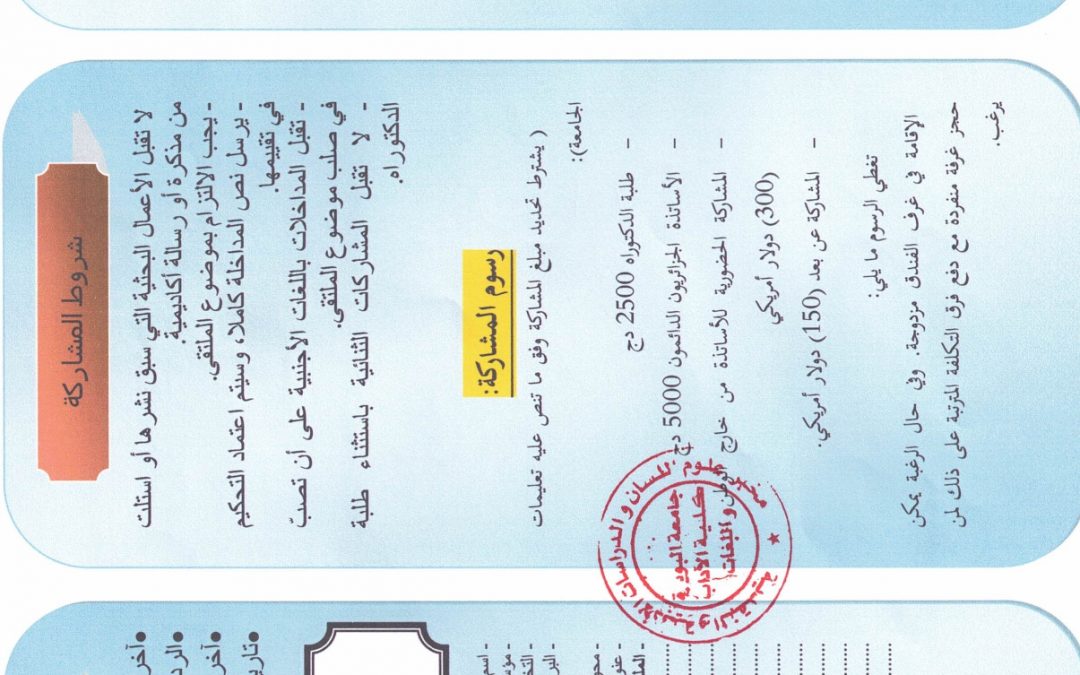 شروط المشاركة
لا تقبل الأعمال البحثية التي سبق نشرها أو استلت
من مذكرة أو رسالة أكاديمية.
- يجب الالتزام بموضوع الملتقى.
- يرسل نص المداخلة كاملا، وسيتم اعتماد التحكيم
في تقييمها.
- تقبل المداخلات باللغات الأجنبية على أن تصبّ
في صلب موضوع الملتقى.
- لا تقبل المشاركات الثنائية باستثناء طلبة
الدكتوراه.
رسوم المشاركة:
( يشترط تحديد مبلغ المشاركة وفق ما تنص عليه تعليمات
الجامعة):
- طلبة الدكتوراه 2500 دج
- الأساتذة الجزائريون الدائمون 5000 دج
- المشاركة الحضورية للأساتذة من خارج الوطن
(300) دولار أمريكي
- المشاركة عن بعد (150) دولار أمريكي.
تغطي الرسوم ما يلي:
الإقامة في غرف الفندق مزدوجة. وفي حال الرغبة يمكن
حجز غرفة منفردة مع دفع فرق التكلفة المترتبة على ذلك لمن
يرغب.
مخبر علوم اللسان و الدراسات الأدبية و النقدية
جامعة البويرة
كلية الآداب
و اللغات